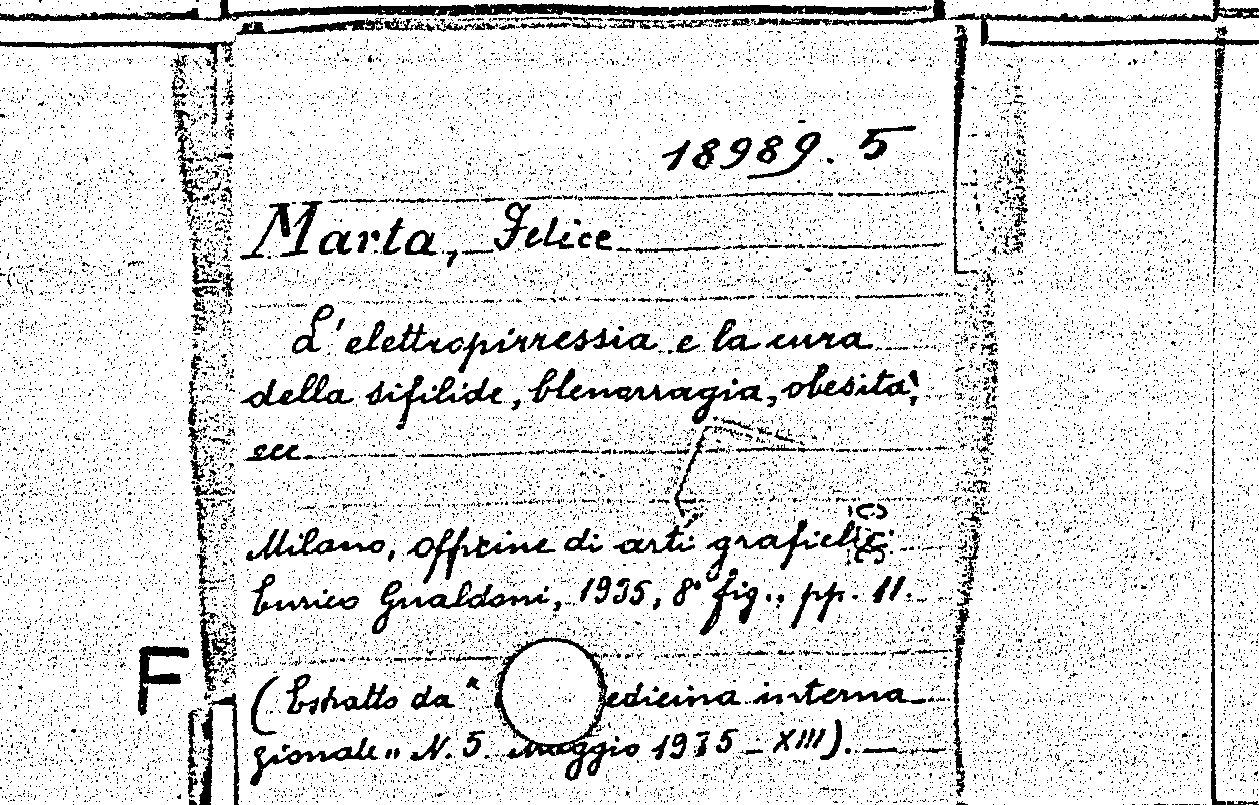 18989. 5
Marta, Felice
L'elettropirressia e la cura
della sifilide, blenorragia, obesità,
ecc.
Milano, officine di arti grafiche
Enrico Gualdoni, 1935, 8° fig., pp. 11.
F
(Estratto da " edicina interna
zionale" N. 5. Maggio 1935 - XIII).